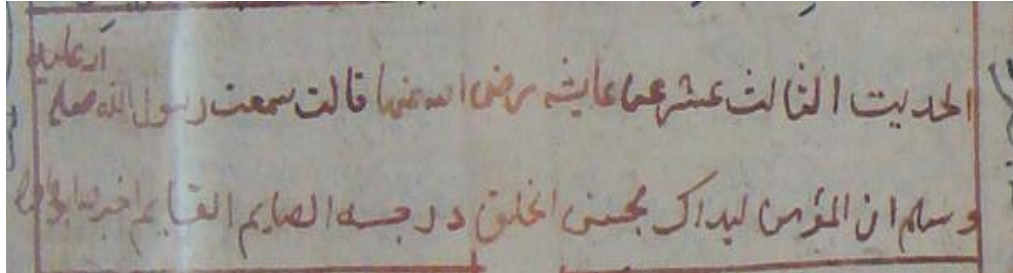 الحديث الثالث عشر عن عايشه رضى الله عنها قالت سمعت رسول الله صلى الله عليه
وسلم ان المؤمن ليدرك بحسن الخلق درجه الصايم القايم اخرجه ابو داود